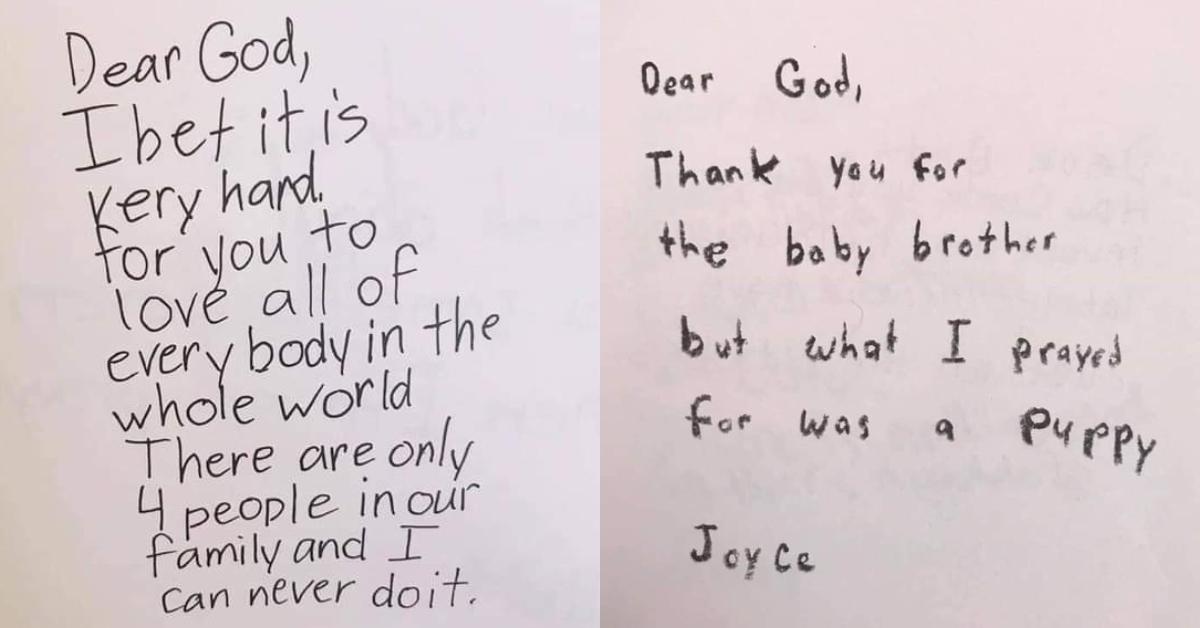 Dear God,
I bet it is
very hard.
for you to
love all of
every body in the
whole world
There are only
4 people in our
family and I
can never do it.
Dear God,
Thank you for
the baby brother
but what I prayed
for was a puppy
Joyce